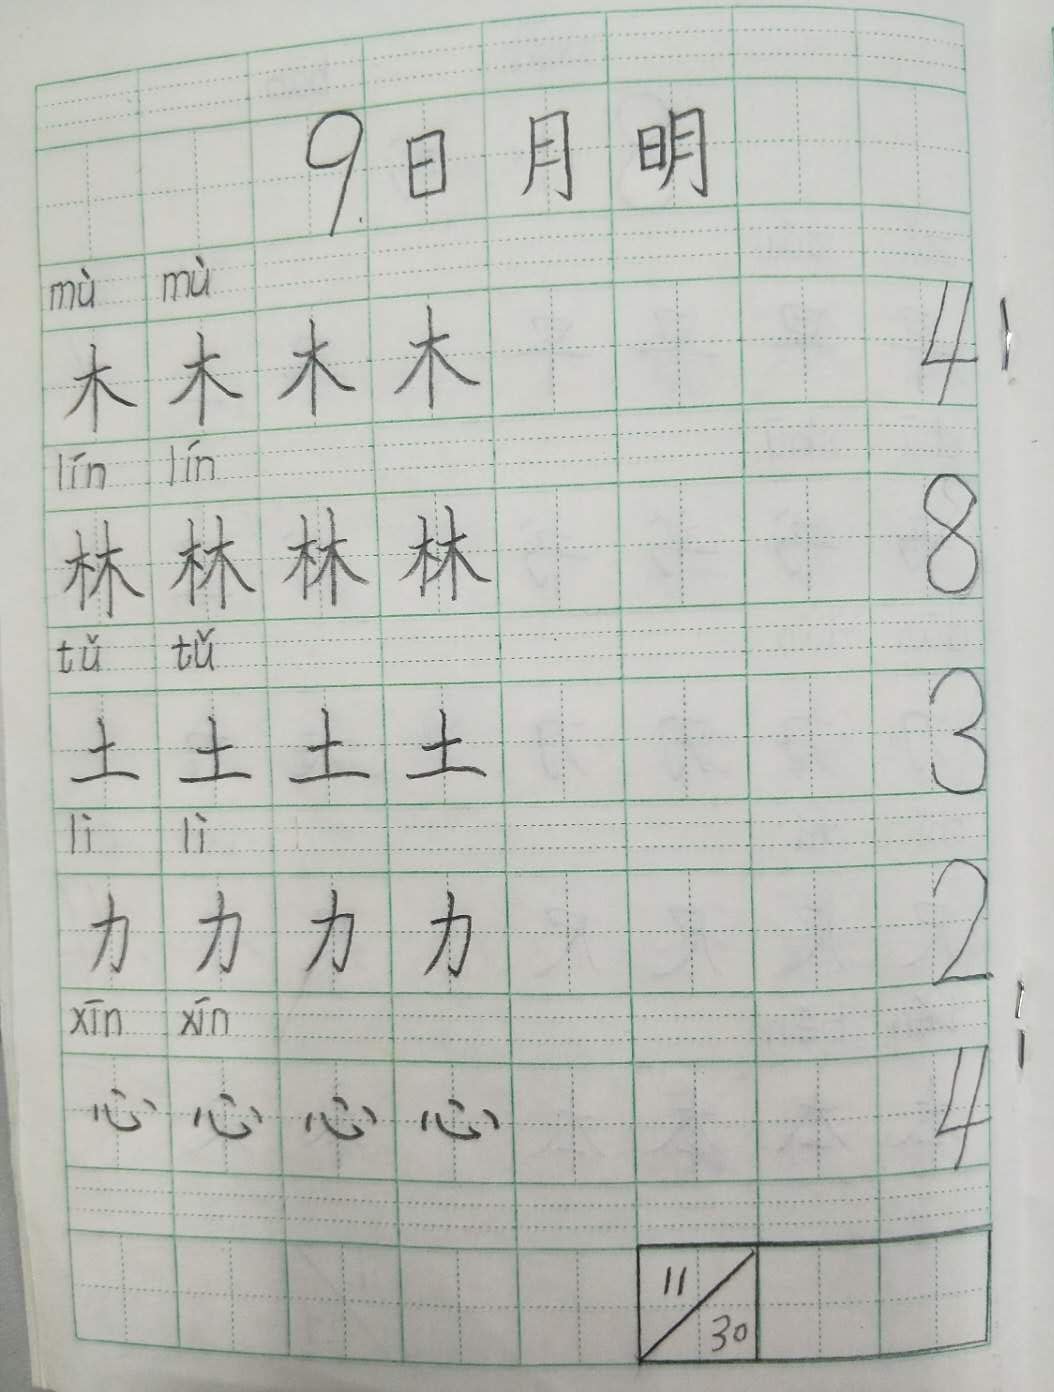 9.日月明
mù mù
木木木木 4
lín lín
林林林林 8
tǔ tǔ
土土土土 3
lì lì
力力力力 2
xīn xín
心心心心 4
11/30